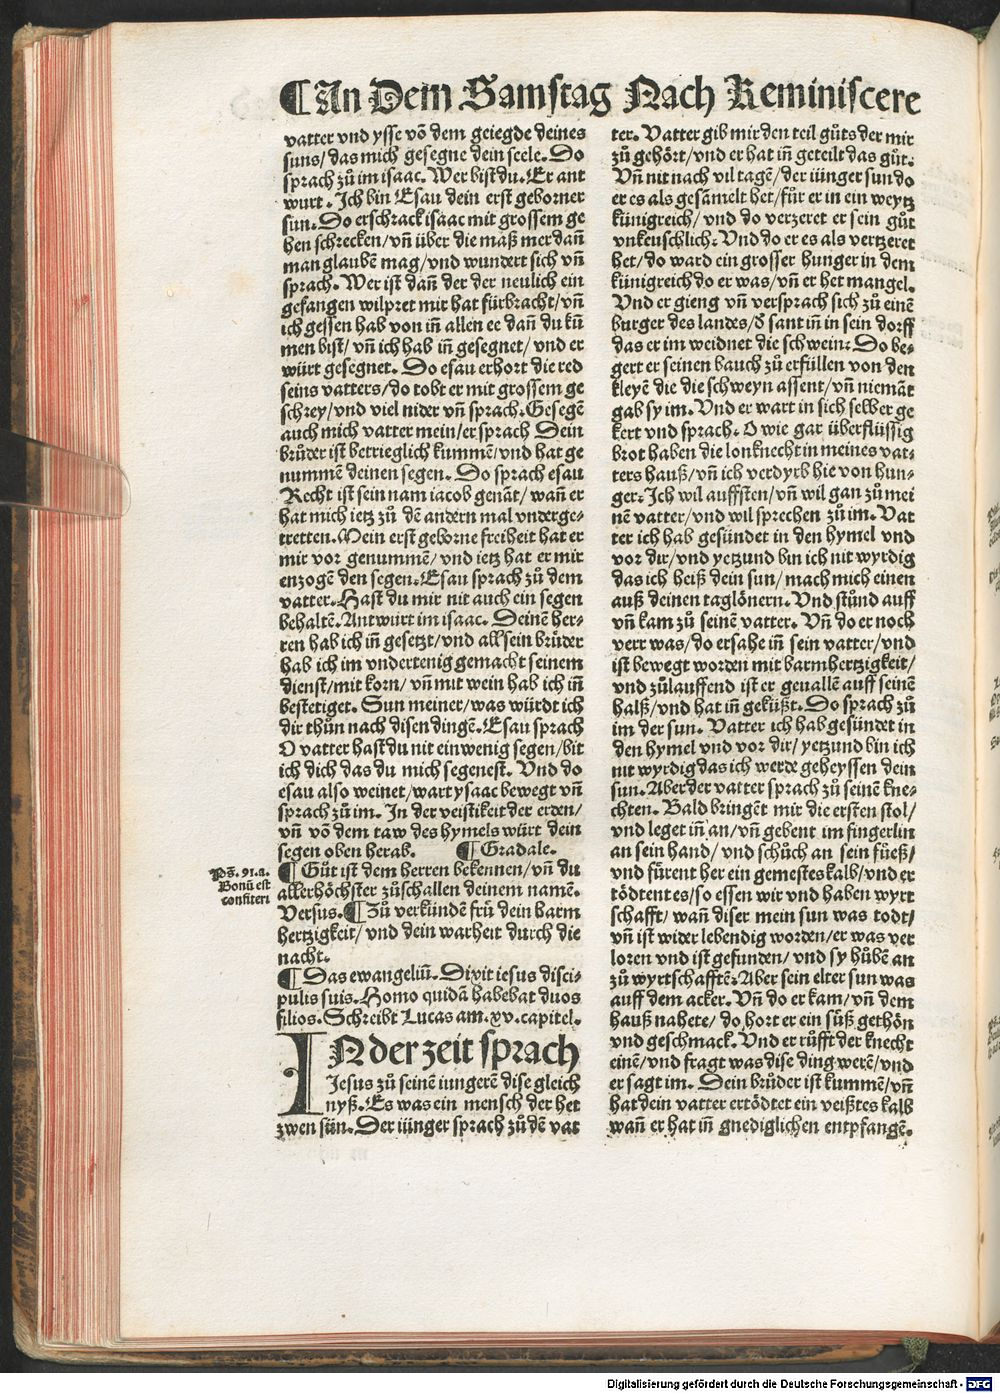 ¶ An Dem Samstag Nach Reminiscere
vatter vnd ysse võ dem geiegde deines
suns/das mich gesegne dein seele. Do
sprach zů im isaac. Wer bist du. Er ant
wurt. Ich bin Esau dein erst geborner
sun. Do erschrack isaac mit grossem ge
hen schrecken/vñ über die maß mer dañ
man glaubẽ mag/vnd wundert sich vñ
sprach. Wer ist dañ der der neulich ein
gefangen wilpret mir hat fürbracht/vñ
ich gessen hab von iñ allen ee dañ du kũ
men bist/vñ ich hab iñ gesegnet/vnd er
würt gesegnet. Do esau erhort die red
seins vatters/do tobt er mit grossem ge
schrey/vnd viel nider vñ sprach. Gesegẽ
auch mich vatter mein/er sprach Dein
brůder ist betrieglich kummẽ/vnd hat ge
nummẽ deinen segen. Do sprach esau
Recht ist sein nam iacob genãt/wañ er
hat mich ietz zů dẽ andern mal vnderge-
tretten. Mein erst geborne freiheit hat er
mir vor genummẽ/vnd ietz hat er mir
enzogẽ den segen. Esau sprach zů dem
vatter. Hast du mir nit auch ein segen
behaltẽ. Antwurt im isaac. Deinẽ her-
ren hab ich iñ gesetzt/vnd all sein brůder
hab ich im vndertenig gemacht seinem
dienst/mit korn/vñ mit wein hab ich iñ
bestetiget. Sun meiner/was würdt ich
dir thůn nach disen dingẽ. Esau sprach
O vatter hast du nit ein wenig segen/bit
ich dich das du mich segenest. Vnd do
esau also weinet/wart ysaac bewegt vñ
sprach zů im. In der veistikeit der erden/
vñ võ dem taw des hymels würt dein
segen oben herab. ¶ Gradale.
Ps̃. 91.a.
Bonũ est
confiteri
¶ Gůt ist dem herren bekennen/vñ du
allerhöchster zůschallen deinem namẽ.
Versus. ¶ Zů verkündẽ frů dein barm
hertzigkeit/vnd dein warheit durch die
nacht.
¶ Das ewangeliũ. Dixit iesus disci-
pulis suis. Homo quidã habebat duos
filios. Schreibt Lucas am .xv. capitel.
IN der zeit sprach
Jesus zů seinẽ iungerẽ dise gleich
nyß. Es was ein mensch der het
zwen sün. Der iünger sprach zů dẽ vat
ter. Vatter gib mir den teil gůts der mir
zů gehört/vnd er hat iñ geteilt das gůt.
Vñ nit nach vil tagẽ/der iünger sun do
er es als gesãmelt het/für er in ein weytz
künigreich/vnd do verzeret er sein gůt
vnkeuschlich. Vnd do er es als vertzeret
het/do ward ein grosser hunger in dem
künigreich do er was/vñ er het mangel.
Vnd er gieng vñ versprach sich zů einẽ
burger des landes/ď sant iñ in sein dorff
das er im weidnet die schwein. Do be-
gert er seinen bauch zů erfüllen von den
kleyẽ die die schweyn assent/vñ niemãt
gab sy im. Vnd er wart in sich selber ge
kert vnd sprach. O wie gar überflüssig
brot haben die lonknecht in meines vat-
ters hauß/vñ ich verdyrb hie von hun-
ger. Ich wil auffsten/vñ wil gan zů mei
nẽ vatter/vnd wil sprechen zů im. Vat
ter ich hab gesündet in den hymel vnd
vor dir/vnd yetzund bin ich nit wyrdig
das ich heiß dein sun/mach mich einen
auß deinen taglönern. Vnd stůnd auff
vñ kam zů seinẽ vatter. Vñ do er noch
verr was/do ersahe iñ sein vatter/vnd
ist bewegt worden mit barmhertzigkeit/
vnd zůlauffend ist er geuallẽ auff seinẽ
halß/vnd hat iñ geküßt. Do sprach zů
im der sun. Vatter ich hab gesündet in
den hymel vnd vor dir/yetzund bin ich
nit wyrdig das ich werde geheyssen dein
sun. Aber der vatter sprach zů seinẽ kne-
chten. Bald bringẽt mir die ersten stol/
vnd leget iñ an/vñ gebent im fingerlin
an sein hand/vnd schůch an sein fůeß/
vnd fürent her ein gemestes kalb/vnd er
tödtent es/so essen wir vnd haben wyrt
schafft/wañ diser mein sun was todt/
vñ ist wider lebendig worden/er was ver
loren vnd ist gefunden/vnd sy hůbẽ an
zů wyrtschafftẽ. Aber sein elter sun was
auff dem acker. Vñ do er kam/vñ dem
hauß nahete/do hort er ein süß gethön
vnd geschmack. Vnd er růfft der knecht
einẽ/vnd fragt was dise ding werẽ/vnd
er sagt im. Dein brůder ist kummẽ/vñ
hat dein vatter ertödtet ein veißtes kalb
wañ er hat iñ gnediglichen entpfangẽ.
Digitalisierung gefördert durch die Deutsche Forschungsgemeinschaft - DFG